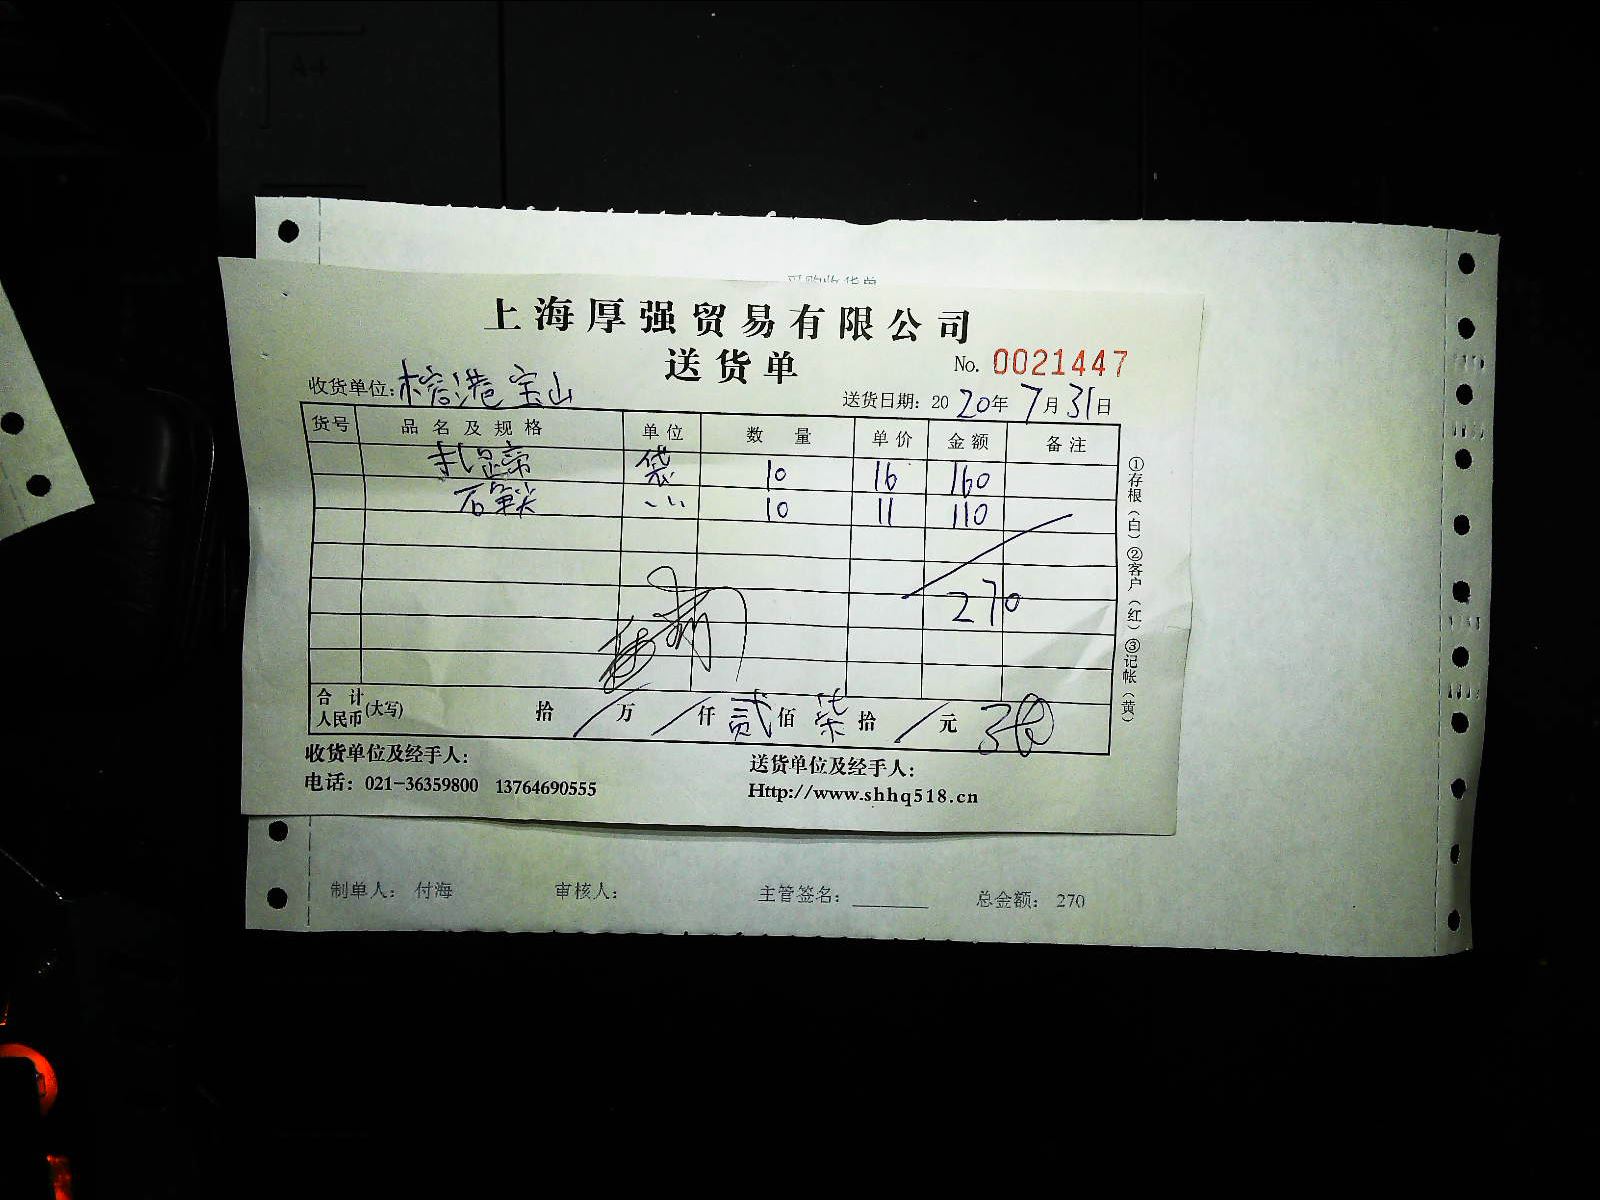 采购收货单
上海厚强贸易有限公司
送货单
No. 0021447
收货单位: 榕港宝山
送货日期: 2020年7月31日
货号 品名及规格 单位 数量 单价 金额 备注
袋 10 16 160
石 〃 10 11 110
270
合计人民币(大写) 拾/万/仟贰佰柒拾/元
①存根(白)②客户(红)③记帐(黄)
收货单位及经手人:
送货单位及经手人:
电话: 021-36359800 13764690555
Http://www.shhq518.cn
制单人: 付海 审核人: 主管签名: 总金额: 270